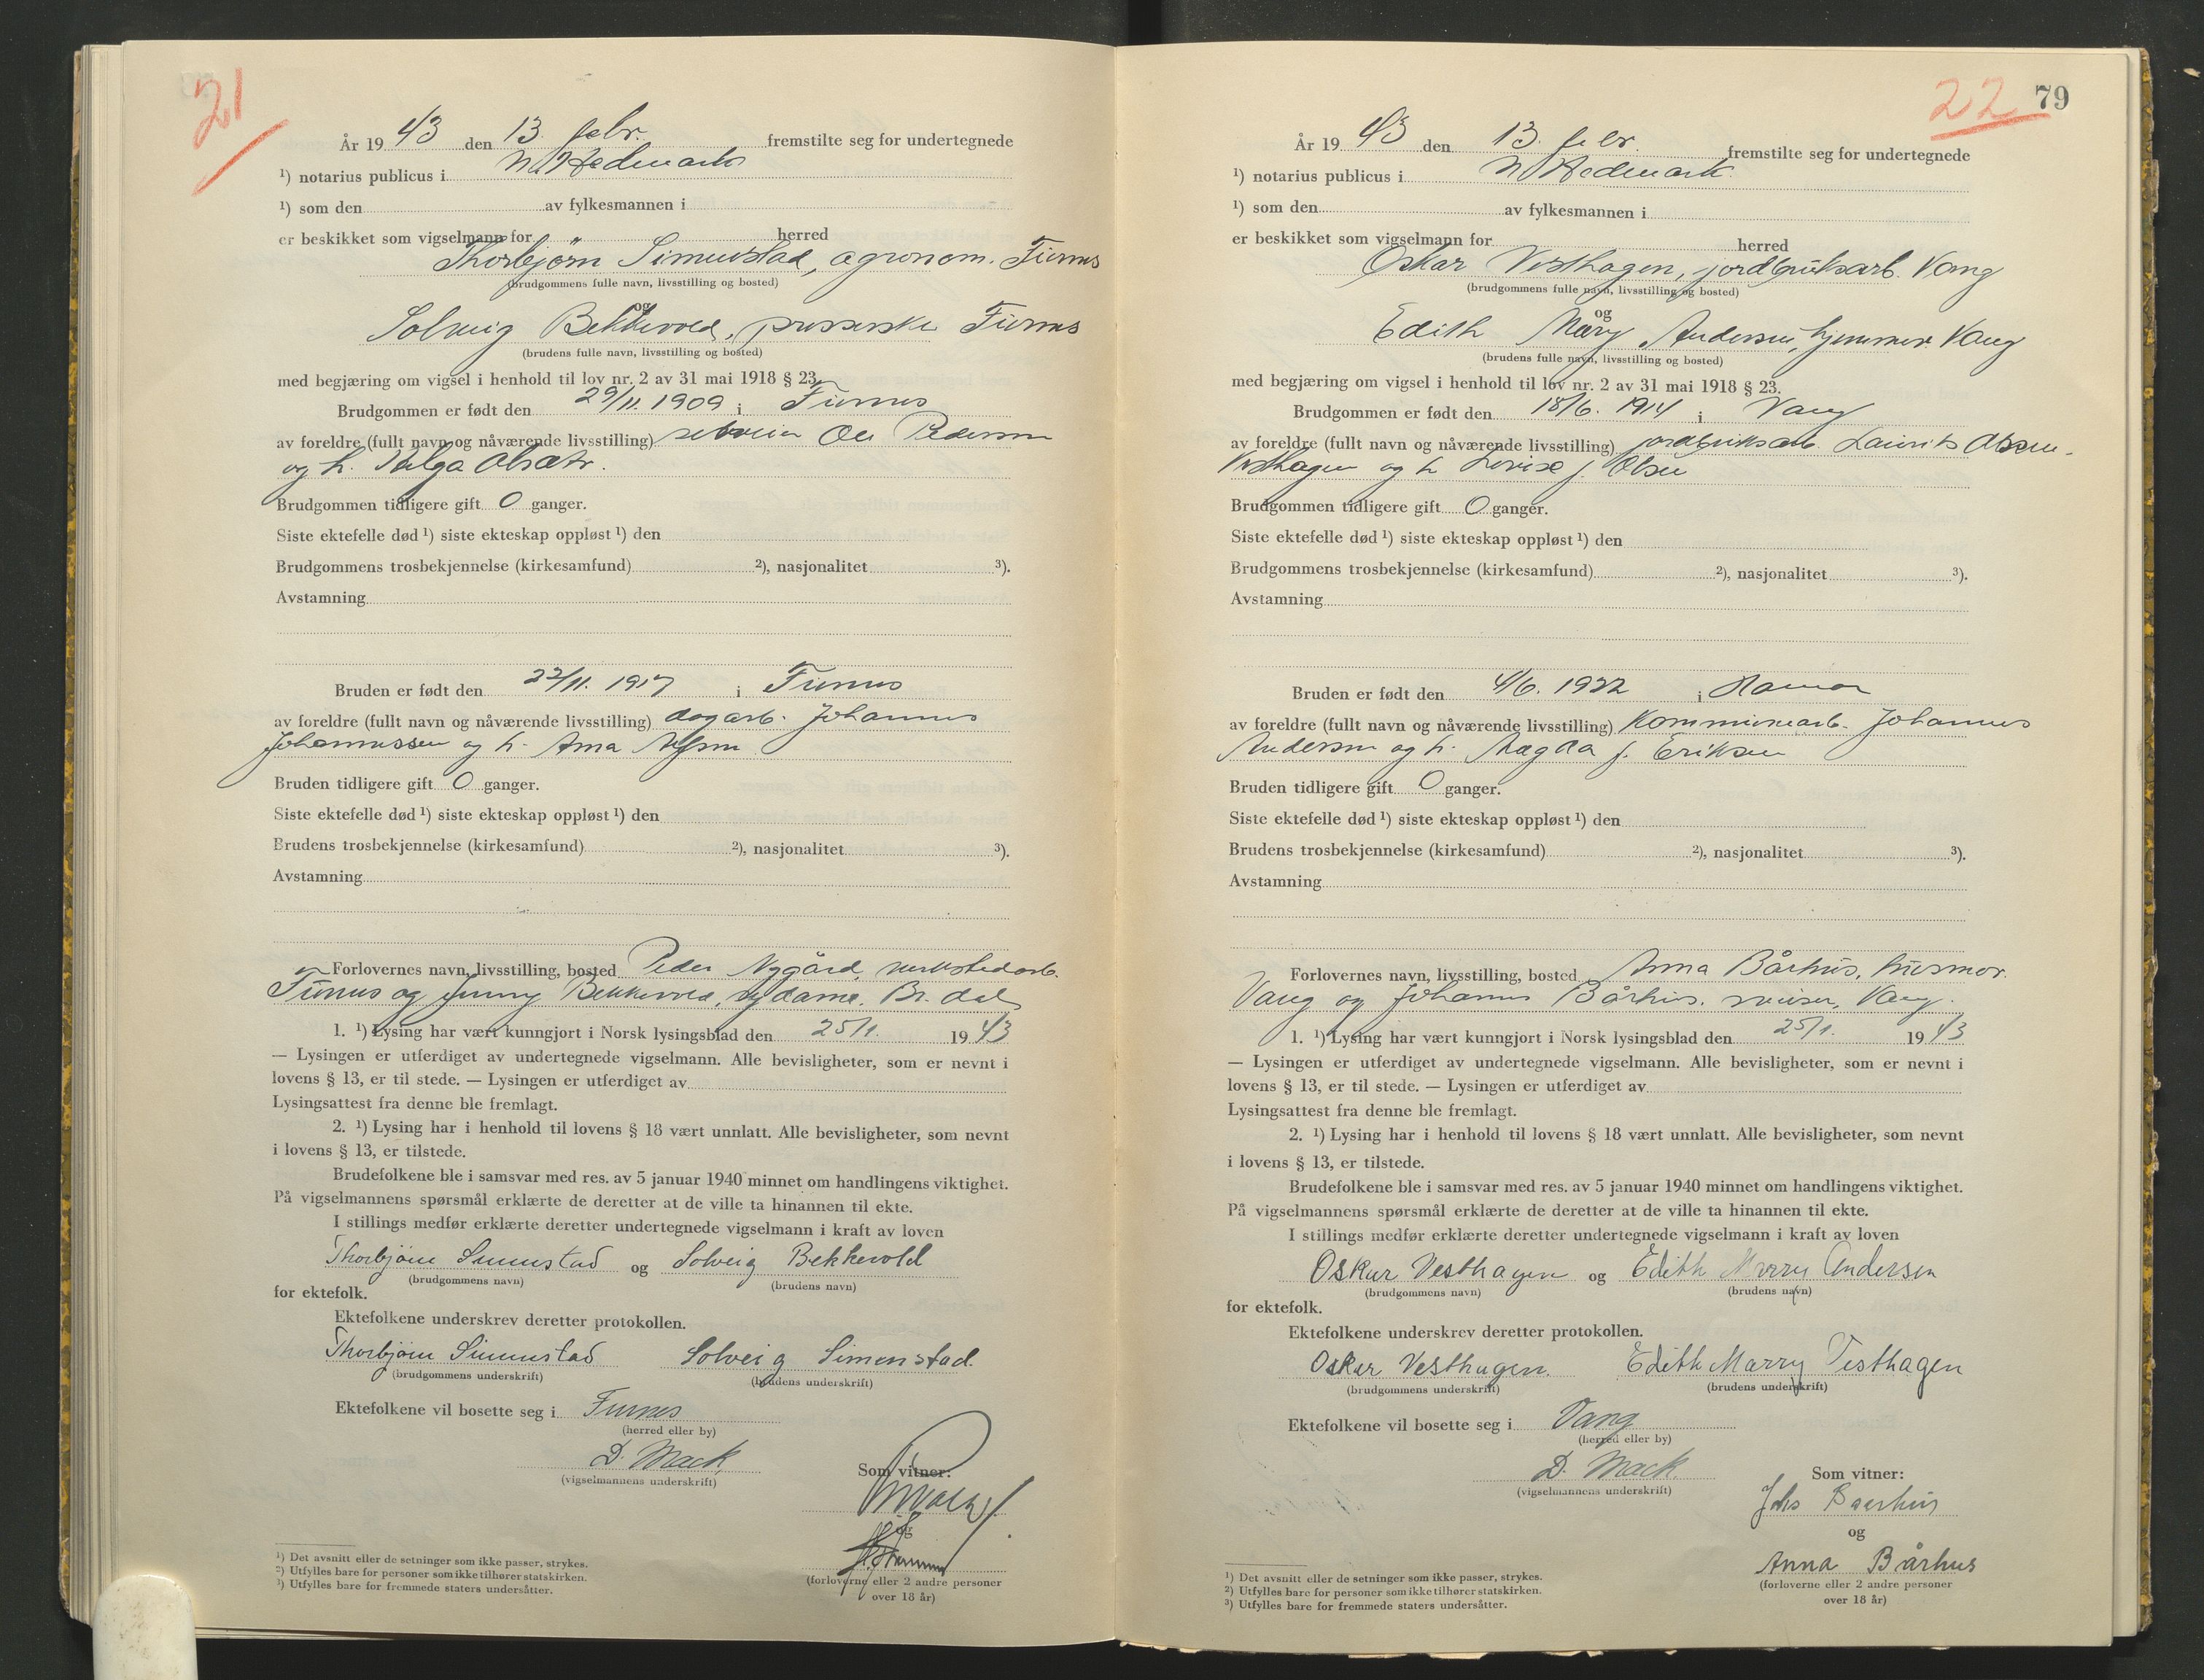 21
År 1943 den 13. febr. fremstilte seg for undertegnede
¹) notarius publicus i N. Hedemark
¹) som den av fylkesmannen i
er beskikket som vigselmann for herred
Thorbjörn Simenstad, agronom. Furnes
(brudgommens fulle navn, livsstilling og bosted)
og
Solveig Bekkevold, Furnes
(brudens fulle navn, livsstilling og bosted)
med begjæring om vigsel i henhold til lov nr. 2 av 31 mai 1918 § 23.
Brudgommen er født den 29/11. 1909 i Furnes
av foreldre (fullt navn og nåværende livsstilling) Ole Pedersen
og h. Helga Olsdtr.
Brudgommen tidligere gift 0 ganger.
Siste ektefelle død ¹) siste ekteskap oppløst ¹) den
Brudgommens trosbekjennelse (kirkesamfund) ²), nasjonalitet ³).
Avstamning
Bruden er født den 22/11. 1917 i Furnes
av foreldre (fullt navn og nåværende livsstilling) dagarb. Johannes
Johannessen og h. Anna
Bruden tidligere gift 0 ganger.
Siste ektefelle død ¹) siste ekteskap oppløst ¹) den
Brudens trosbekjennelse (kirkesamfund) ²), nasjonalitet ³).
Avstamning
Forlovernes navn, livsstilling, bosted Peder Nygård, verkstedarb.
Furnes og Jenny Bekkevold, sydame. Br. dal
1. ¹) Lysing har vært kunngjort i Norsk lysingsblad den 25/1. 1943
— Lysingen er utferdiget av undertegnede vigselmann. Alle bevisligheter, som er nevnt i
lovens § 13, er til stede. — Lysingen er utferdiget av
Lysingsattest fra denne ble fremlagt.
2. ¹) Lysing har i henhold til lovens § 18 vært unnlatt. Alle bevisligheter, som nevnt
i lovens § 13, er tilstede.
Brudefolkene ble i samsvar med res. av 5 januar 1940 minnet om handlingens viktighet.
På vigselmannens spørsmål erklærte de deretter at de ville ta hinannen til ekte.
I stillings medfør erklærte deretter undertegnede vigselmann i kraft av loven
Thorbjörn Simenstad og Solveig Bekkevold
(brudgommens navn) (brudens navn)
for ektefolk.
Ektefolkene underskrev deretter protokollen.
Thorbjörn Simenstad Solveig Simenstad.
(brudgommens underskrift) (brudens underskrift)
Ektefolkene vil bosette seg i Furnes
(herred eller by)
D. Mack.
(vigselmannens underskrift)
Som vitner:
og
(forloverne eller 2 andre personer
over 18 år)
¹) Det avsnitt eller de setninger som ikke passer, strykes.
²) Utfylles bare for personer som ikke tilhører statskirken.
³) Utfylles bare for fremmede staters undersåtter.
22 79
År 1943 den 13. febr. fremstilte seg for undertegnede
¹) notarius publicus i N. Hedemark
¹) som den av fylkesmannen i
er beskikket som vigselmann for herred
Oskar Vesthagen, jordbruksarb. Vang
(brudgommens fulle navn, livsstilling og bosted)
og
Edith Marry Andersen, hjemmev. Vang
(brudens fulle navn, livsstilling og bosted)
med begjæring om vigsel i henhold til lov nr. 2 av 31 mai 1918 § 23.
Brudgommen er født den 18/6. 1914 i Vang
av foreldre (fullt navn og nåværende livsstilling) jordbruksarb. Laurits Olsen
Vesthagen og h. Lovise f. Olsen
Brudgommen tidligere gift 0 ganger.
Siste ektefelle død ¹) siste ekteskap oppløst ¹) den
Brudgommens trosbekjennelse (kirkesamfund) ²), nasjonalitet ³).
Avstamning
Bruden er født den 4/6. 1922 i Hamar
av foreldre (fullt navn og nåværende livsstilling) Kommunearb. Johannes
Andersen og h. Magda f. Eriksen
Bruden tidligere gift 0 ganger.
Siste ektefelle død ¹) siste ekteskap oppløst ¹) den
Brudens trosbekjennelse (kirkesamfund) ²), nasjonalitet ³).
Avstamning
Forlovernes navn, livsstilling, bosted Anna Bårhus, husmor.
Vang og Johannes Bårhus, sveiser, Vang.
1. ¹) Lysing har vært kunngjort i Norsk lysingsblad den 25/1. 1943
— Lysingen er utferdiget av undertegnede vigselmann. Alle bevisligheter, som er nevnt i
lovens § 13, er til stede. — Lysingen er utferdiget av
Lysingsattest fra denne ble fremlagt.
2. ¹) Lysing har i henhold til lovens § 18 vært unnlatt. Alle bevisligheter, som nevnt
i lovens § 13, er tilstede.
Brudefolkene ble i samsvar med res. av 5 januar 1940 minnet om handlingens viktighet.
På vigselmannens spørsmål erklærte de deretter at de ville ta hinannen til ekte.
I stillings medfør erklærte deretter undertegnede vigselmann i kraft av loven
Oskar Vesthagen og Edith Marry Andersen
(brudgommens navn) (brudens navn)
for ektefolk.
Ektefolkene underskrev deretter protokollen.
Oskar Vesthagen. Edith Marry Vesthagen
(brudgommens underskrift) (brudens underskrift)
Ektefolkene vil bosette seg i Vang
(herred eller by)
D. Mack.
(vigselmannens underskrift)
Som vitner:
Johs Baarhus
og
Anna Bårhus
(forloverne eller 2 andre personer
over 18 år)
¹) Det avsnitt eller de setninger som ikke passer, strykes.
²) Utfylles bare for personer som ikke tilhører statskirken.
³) Utfylles bare for fremmede staters undersåtter.